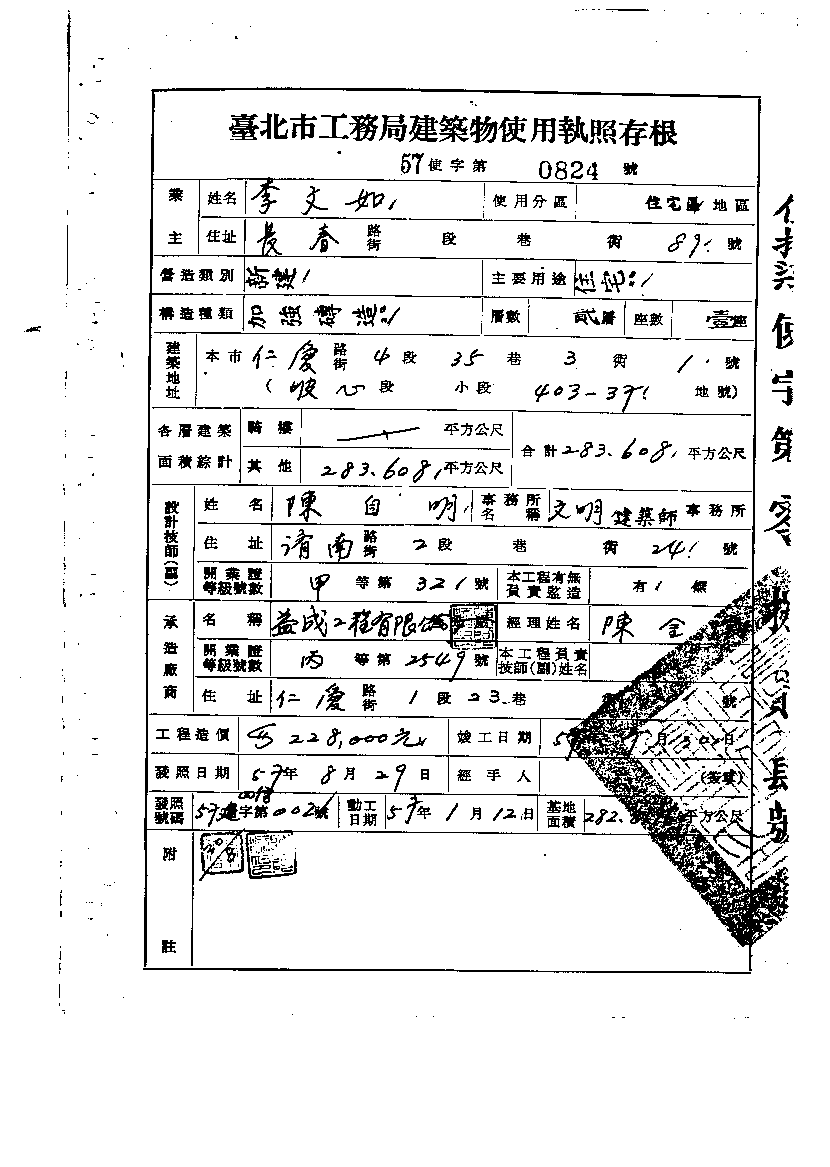 臺北市工務局建築物使用執照存根
57使字第 0824 號
業主 姓名 李文如 使用分區 住宅區 地區
住址 長春 路街 段 巷 衖 89 號
營造類別 新建 主要用途 住宅
構造種類 加強磚造 層數 貳層 座數 壹座
建築地址 本市 仁愛 路街 4段 35巷 3衖 1號
(坡心段 小段 403-39 地號)
各層建築面積綜計 騎樓 平方公尺 合計283.608平方公尺
其他 283.608平方公尺
設計技師(副) 姓名 陳自明 事務所名稱 文明建築師事務所
住址 濟南 路街 2段 巷 衖 24 號
開業證等級號數 甲等第321號 本工程有無負責監造 有
承造廠商 名稱 益成工程有限公司 經理姓名 陳全
開業證等級號數 丙等第2549號 本工程負責技師(副)姓名
住址 仁愛 路街 1段 23巷 號
工程造價 228,000元 竣工日期 57年 月 30日
發照日期 57年8月29日 經手人 (簽章)
發照號碼 57建字第002號 動工日期 57年1月12日 基地面積 282. 平方公尺
附註
使字第零